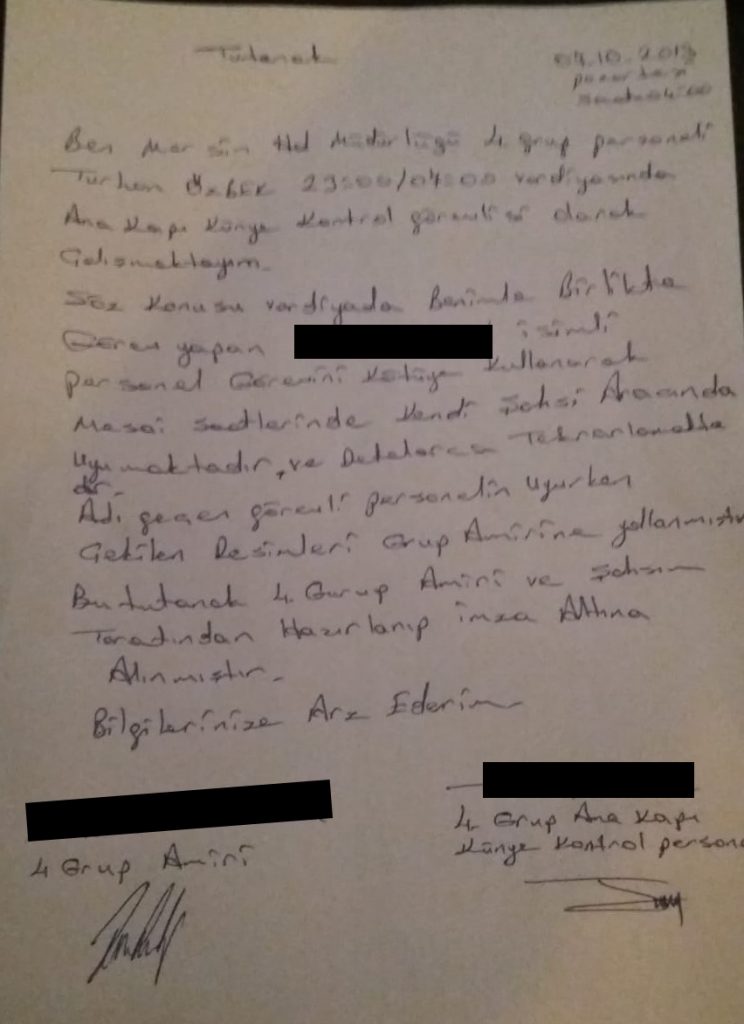 Tutanak
07.10.2013
pazartesi
saat:04:00
Ben Mersin Hal Müdürlüğü 4. grup personeli
Türkan ÖzBEK 23:00/07:00 vardiyasında
Ana Kapı Künye Kontrol görevlisi olarak
Çalışmaktayım.
Söz Konusu vardiyada Benimle Birlikte
Görev yapan isimli
personel Görevini Kötüye Kullanarak
Mesai saatlerinde Kendi Şahsi Aracında
Uyumaktadır, ve Defalarca Tekrarlamakta
dır.
Adı geçen görevli personelin Uyurken
Çekilen Resimleri Grup Amirine yollanmıştır
Bu tutanak 4. Gurup Amiri ve Şahsım
Tarafından Hazırlanıp imza Altına
Alınmıştır.
Bilgilerinize Arz Ederim
4. Grup Ana Kapı
Künye Kontrol persone
4 Grup Amiri